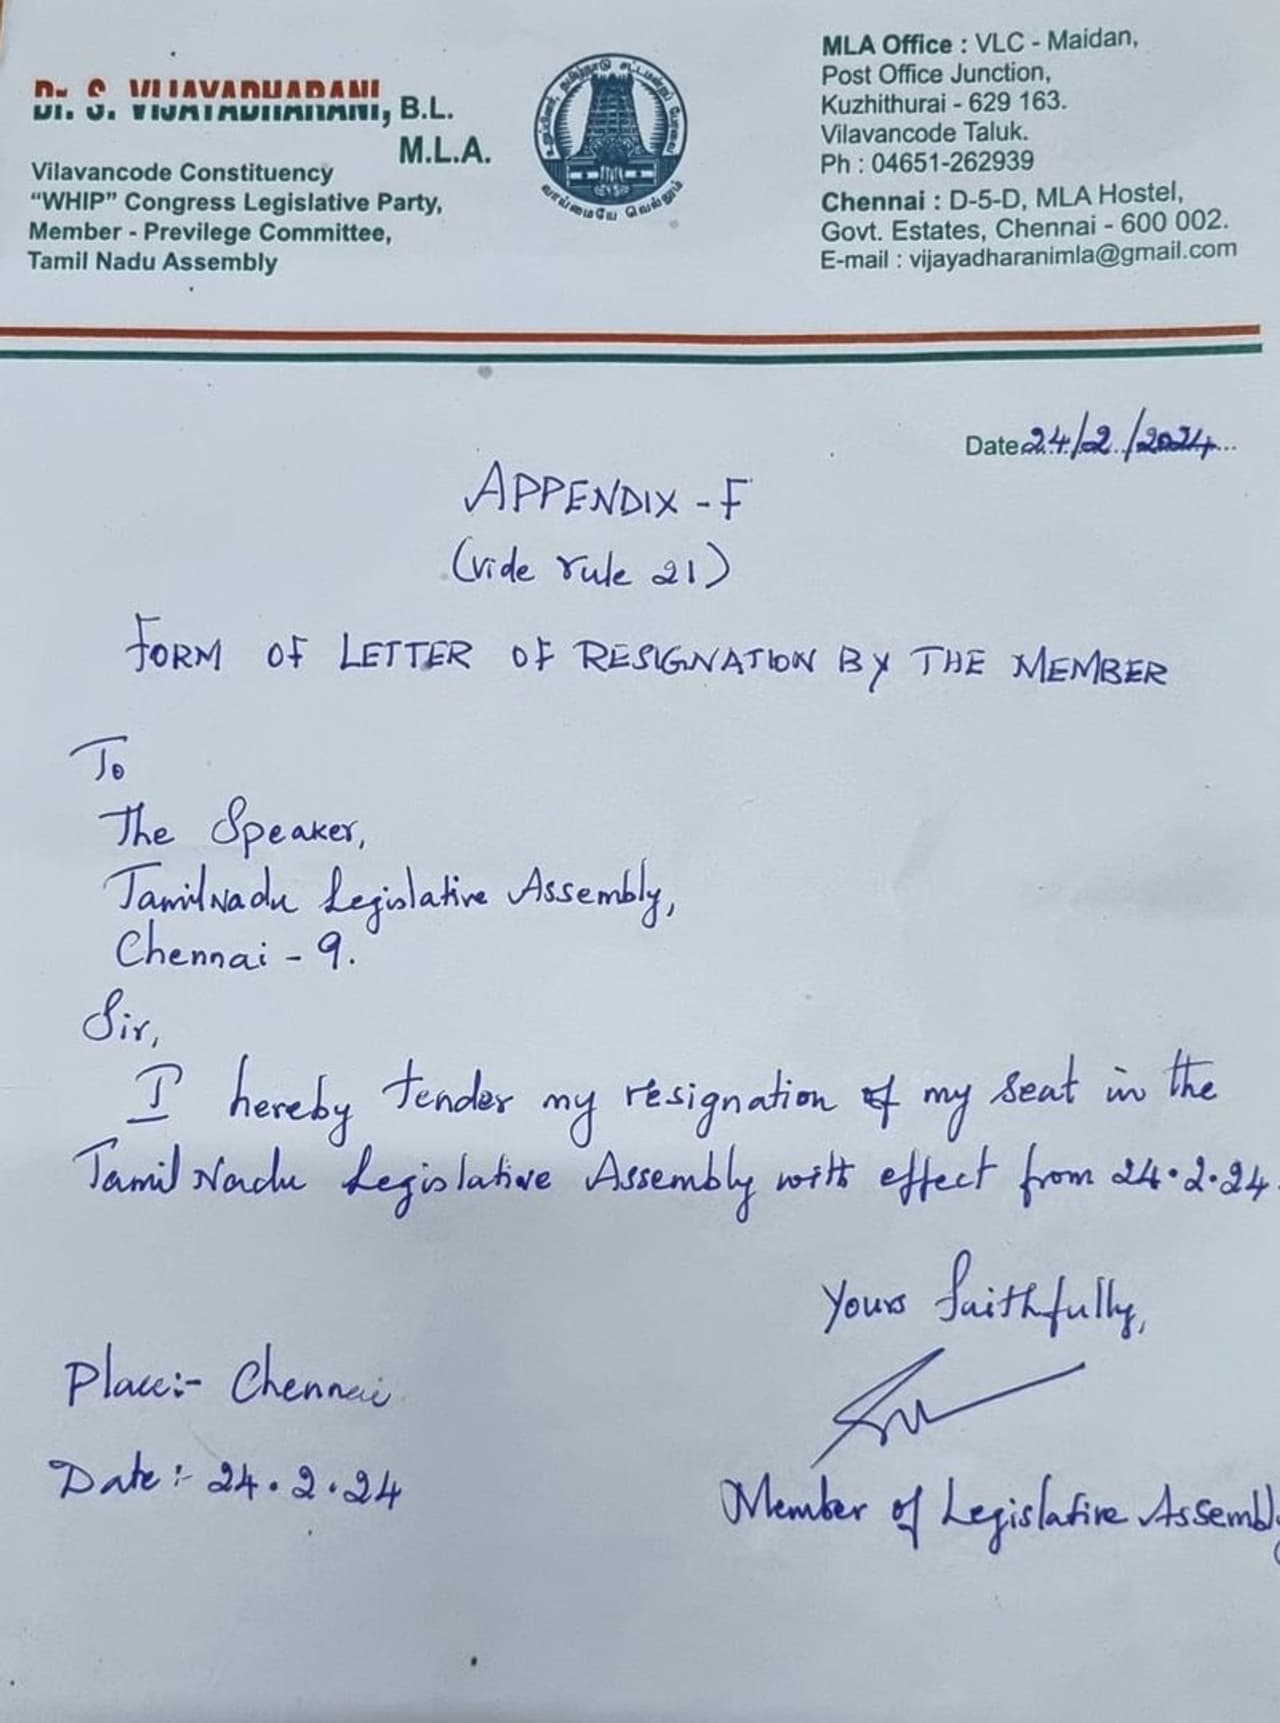 Dr. S. VIJAYADHARANI, B.L.
M.L.A.
Vilavancode Constituency
“WHIP” Congress Legislative Party,
Member - Previlege Committee,
Tamil Nadu Assembly
தமிழ்நாடு சட்டமன்றப் பேரவை
வாய்மையே வெல்லும்
MLA Office : VLC - Maidan,
Post Office Junction,
Kuzhithurai - 629 163.
Vilavancode Taluk.
Ph : 04651-262939
Chennai : D-5-D, MLA Hostel,
Govt. Estates, Chennai - 600 002.
E-mail : vijayadharanimla@gmail.com
Date 24/2/2024
APPENDIX - F
(vide rule 21)
FORM OF LETTER OF RESIGNATION BY THE MEMBER
To
The Speaker,
TamilNadu Legislative Assembly,
Chennai - 9.
Sir,
I hereby tender my resignation of my seat in the
Tamil Nadu Legislative Assembly with effect from 24.2.24.
Yours faithfully,
Place:- Chennai
Date:- 24.2.24
Member of Legislative Assembly